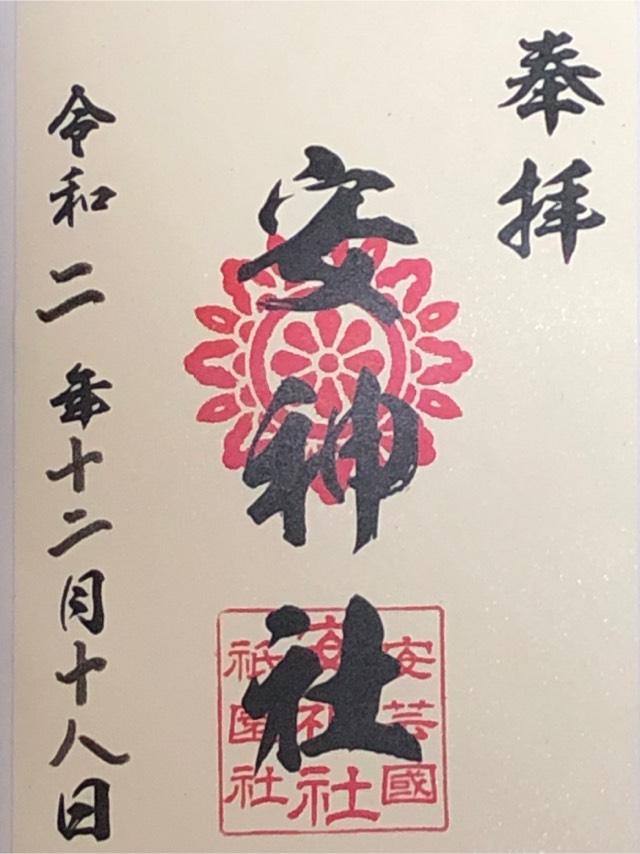 奉拝
安神社
安芸國
安神社
祇園社
令和二年十二月十八日